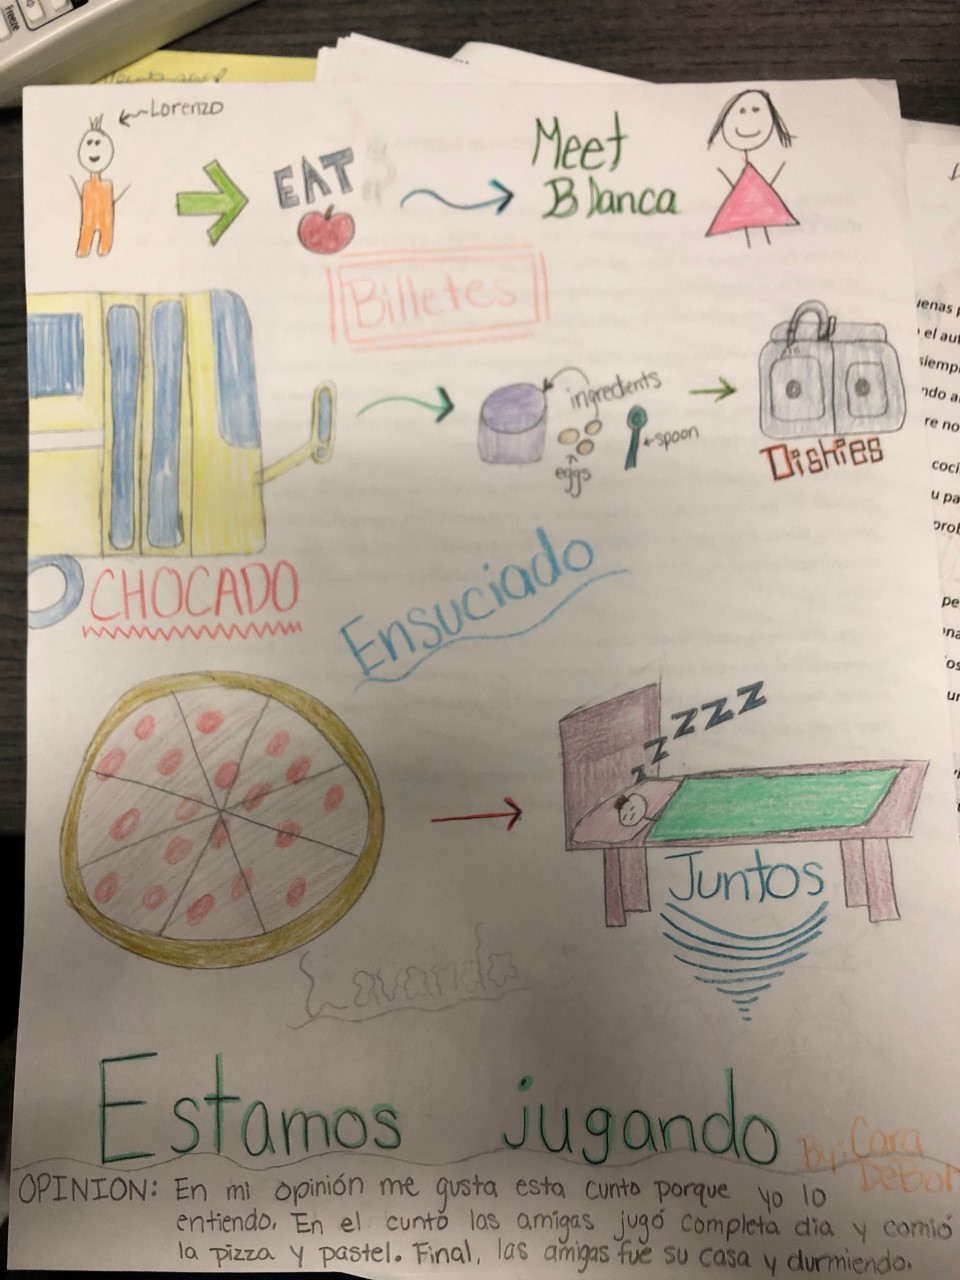 Freeze
Lorenzo
EAT
Meet
Blanca
Billetes
ingredients
spoon
eggs
Dishies
CHOCADO
Ensuciado
zzzzz
Juntos
Lavando
Estamos jugando
By: Cara
DeBol
OPINION: En mi opinión me gusta esta cunto porque yo lo
entiendo. En el cunto las amigas jugó completa dia y comió
la pizza y pastel. Final, las amigas fue su casa y durmiendo.
uenas p
el aut
siemp
ndo a
re no
coci
u pa
prob